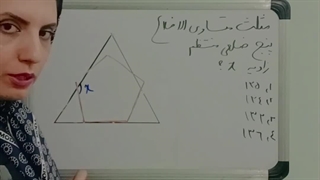 مثلث متساوی الاضلاع
پنج ضلعی منتظم
زاویه x ؟
۱) ۱۲۵
۲) ۱۲۴
۳) ۱۳۲
۴) ۱۳۶
x